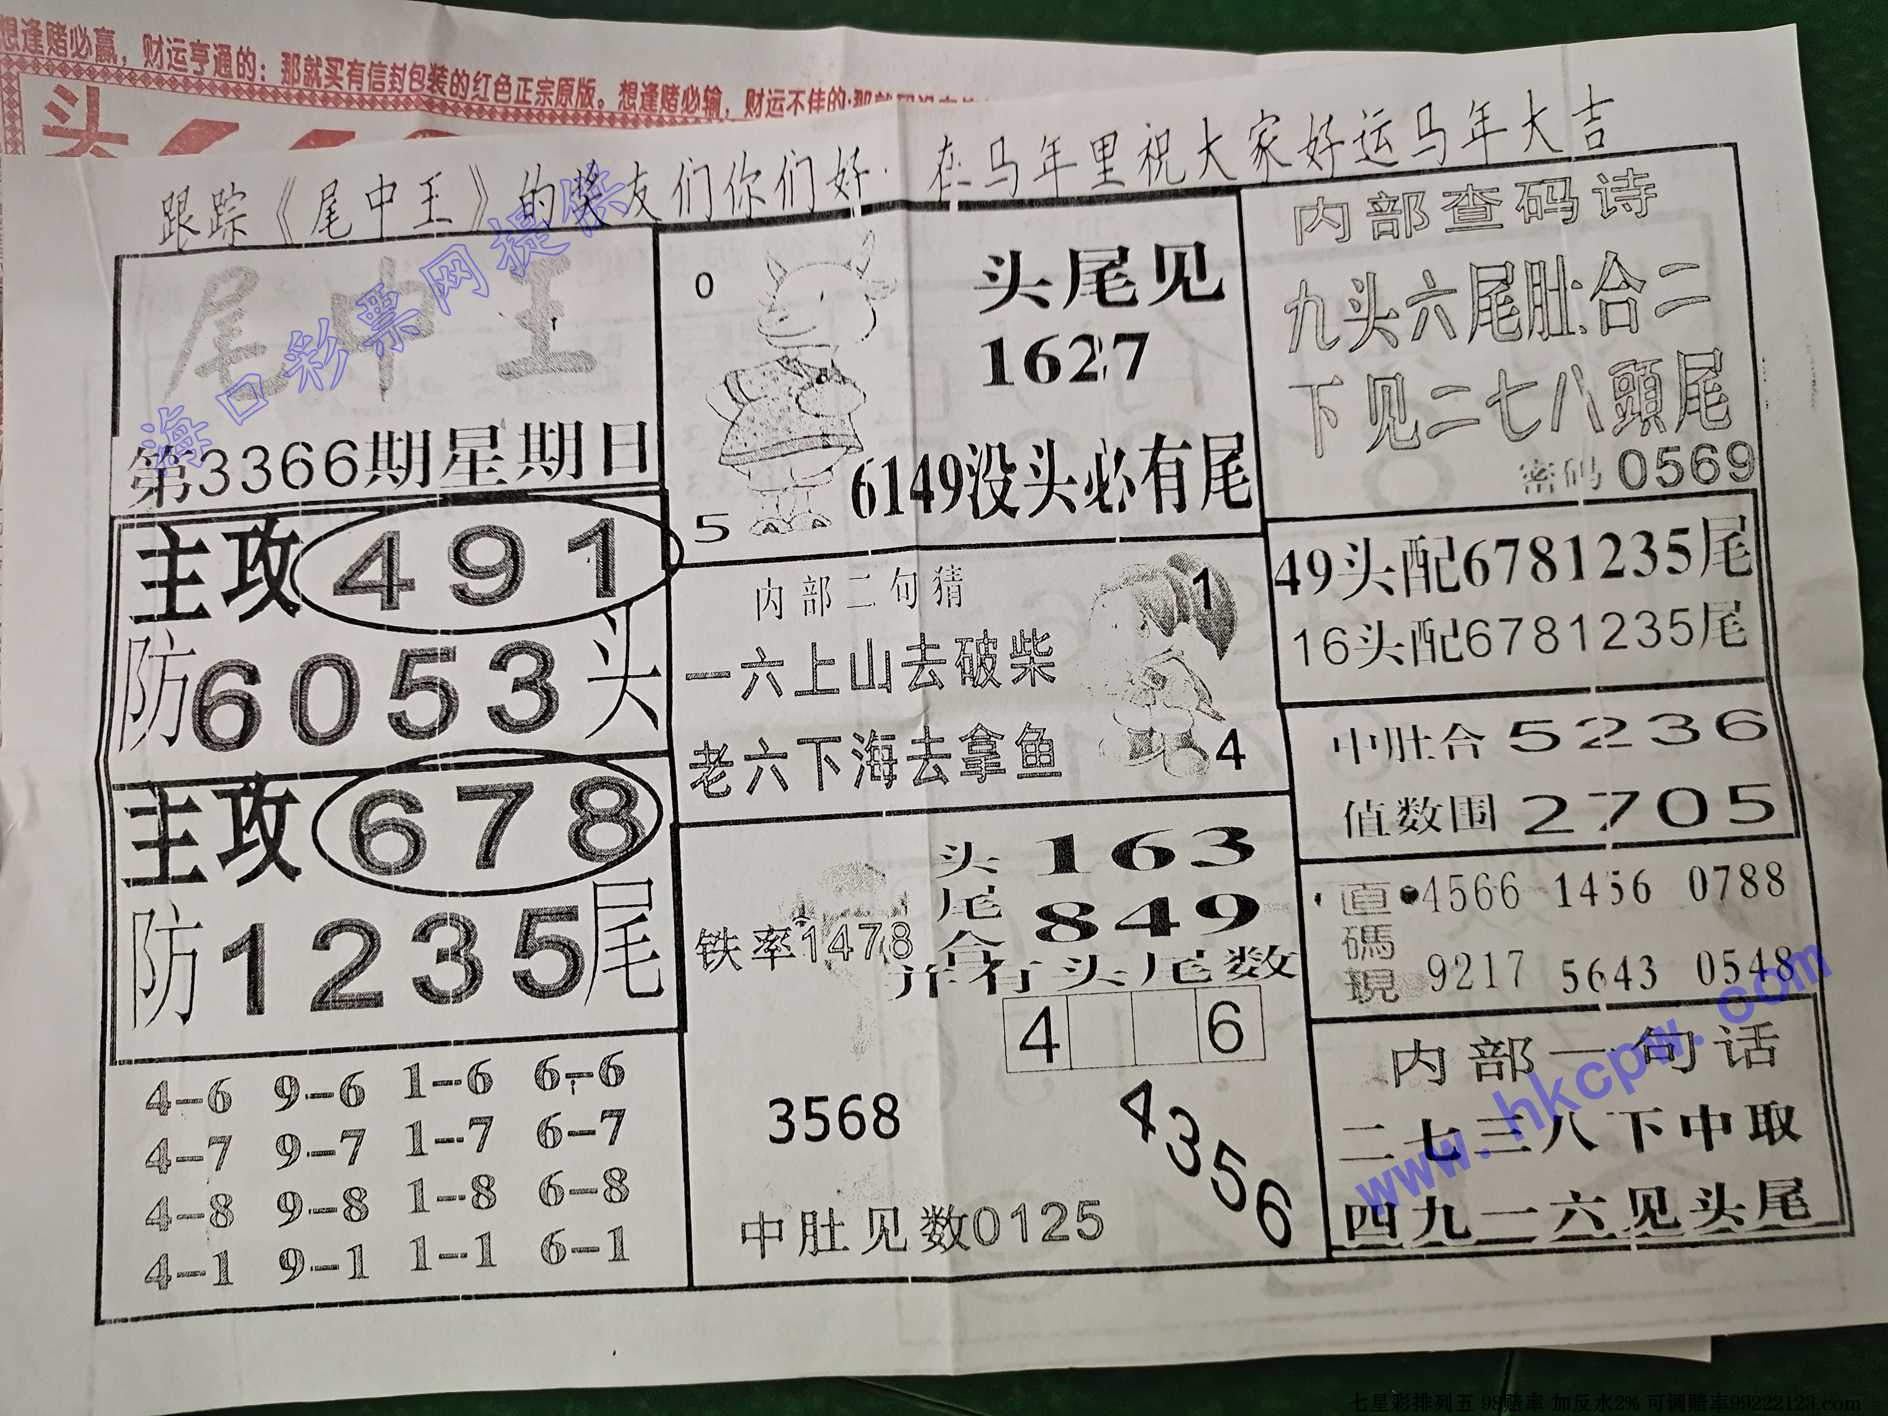 想逢赌必赢，财运亨通的：那就买有信封包装的红色正宗原版。想逢赌必输，财运不佳的：那就
头
跟踪《尾中王》的奖友们你们好. 在马年里祝大家好运马年大吉
尾中王
第3366期星期日
主攻491
防6053头
主攻678
防1235尾
4--6 9--6 1--6 6--6
4--7 9--7 1--7 6--7
4--8 9--8 1--8 6--8
4--1 9--1 1--1 6--1
0
头尾见
1627
6149没头必有尾
5
内部二句猜
1
一六上山去破柴
老六下海去拿鱼
4
头163
尾849
合
铁率1478
并有头尾数
4 6
3568
4356
中肚见数0125
内部查码诗
九头六尾肚合二
下见二七八頭尾
密码0569
49头配6781235尾
16头配6781235尾
中肚合5236
值数围2705
直碼現
4566 1456 0788
9217 5643 0548
内部一句话
二七三八下中取
四九一六见头尾
海口彩票网提供
www.hkcpw.com
七星彩排列五 98赔率 加反水2% 可调赔率99222123.com